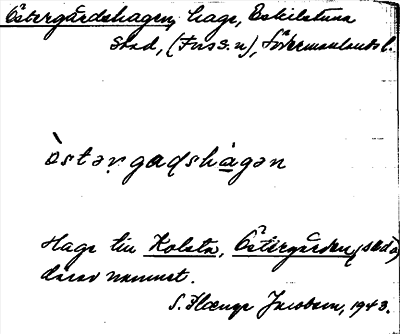 Östergårdshagen, hage, Eskilstuna
stad, (Fors s:n), Södermanlands l.
òstərgaḍshàgən
Hage till Kolsta, Östergården,
därav namnet.
S. Jacobson, 1943.